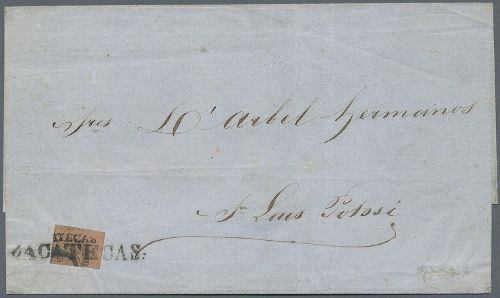 Sres D'Arbel Hermanos
Sn Luis Potosi
ATECAS
ZACATECAS.